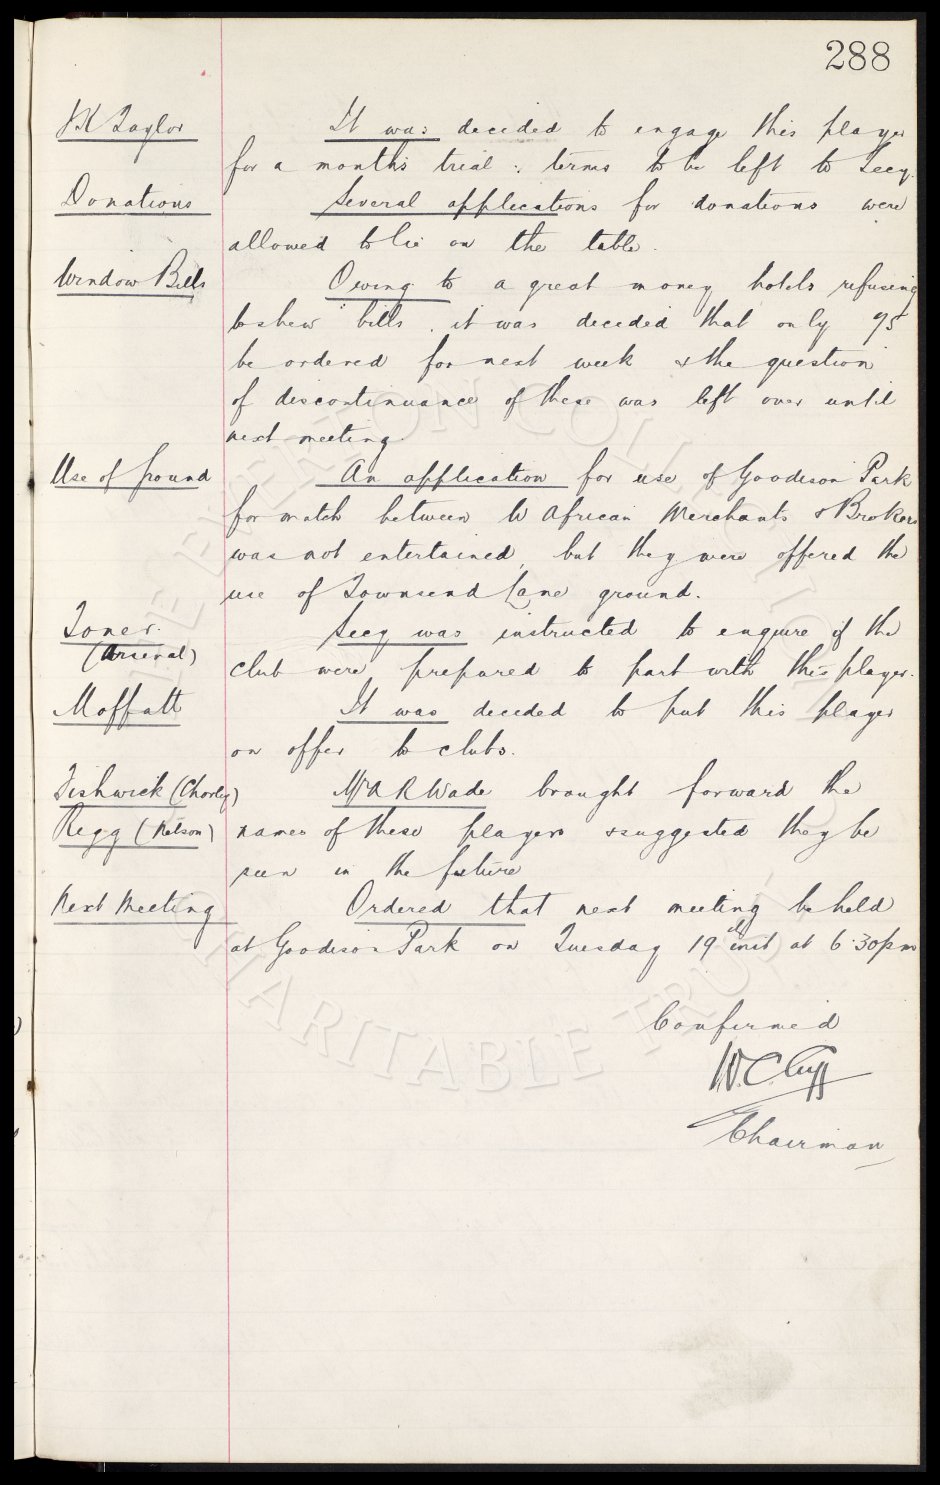 288
JK Taylor
It was decided to engage this player
for a month's trial : terms to be left to Secy.
Donations
Several applications for donations were
allowed to lie on the table.
Window Bills
Owing to a great money hotels refusing
to shew bills, it was decided that only 75
be ordered for next week & the question
of discontinuance of these was left over until
next meeting.
Use of ground
An application for use of Goodison Park
for match between W African Merchants & Brokers
was not entertained, but they were offered the
use of Townsend Lane ground.
Toner.
(Arsenal)
Secy was instructed to enquire if the
club were prepared to part with this player.
Moffatt
It was decided to put this player
on offer to clubs.
Fishwick (Chorley)
Mr A R Wade brought forward the
Regg (Nelson)
names of these players & suggested they be
seen in the future
Next Meeting
Ordered that next meeting be held
at Goodison Park on Tuesday 19th inst at 6.30pm
Confirmed
W.C. Cuff
Chairman
THE EVERTON COLLECTION
CHARITABLE TRUST